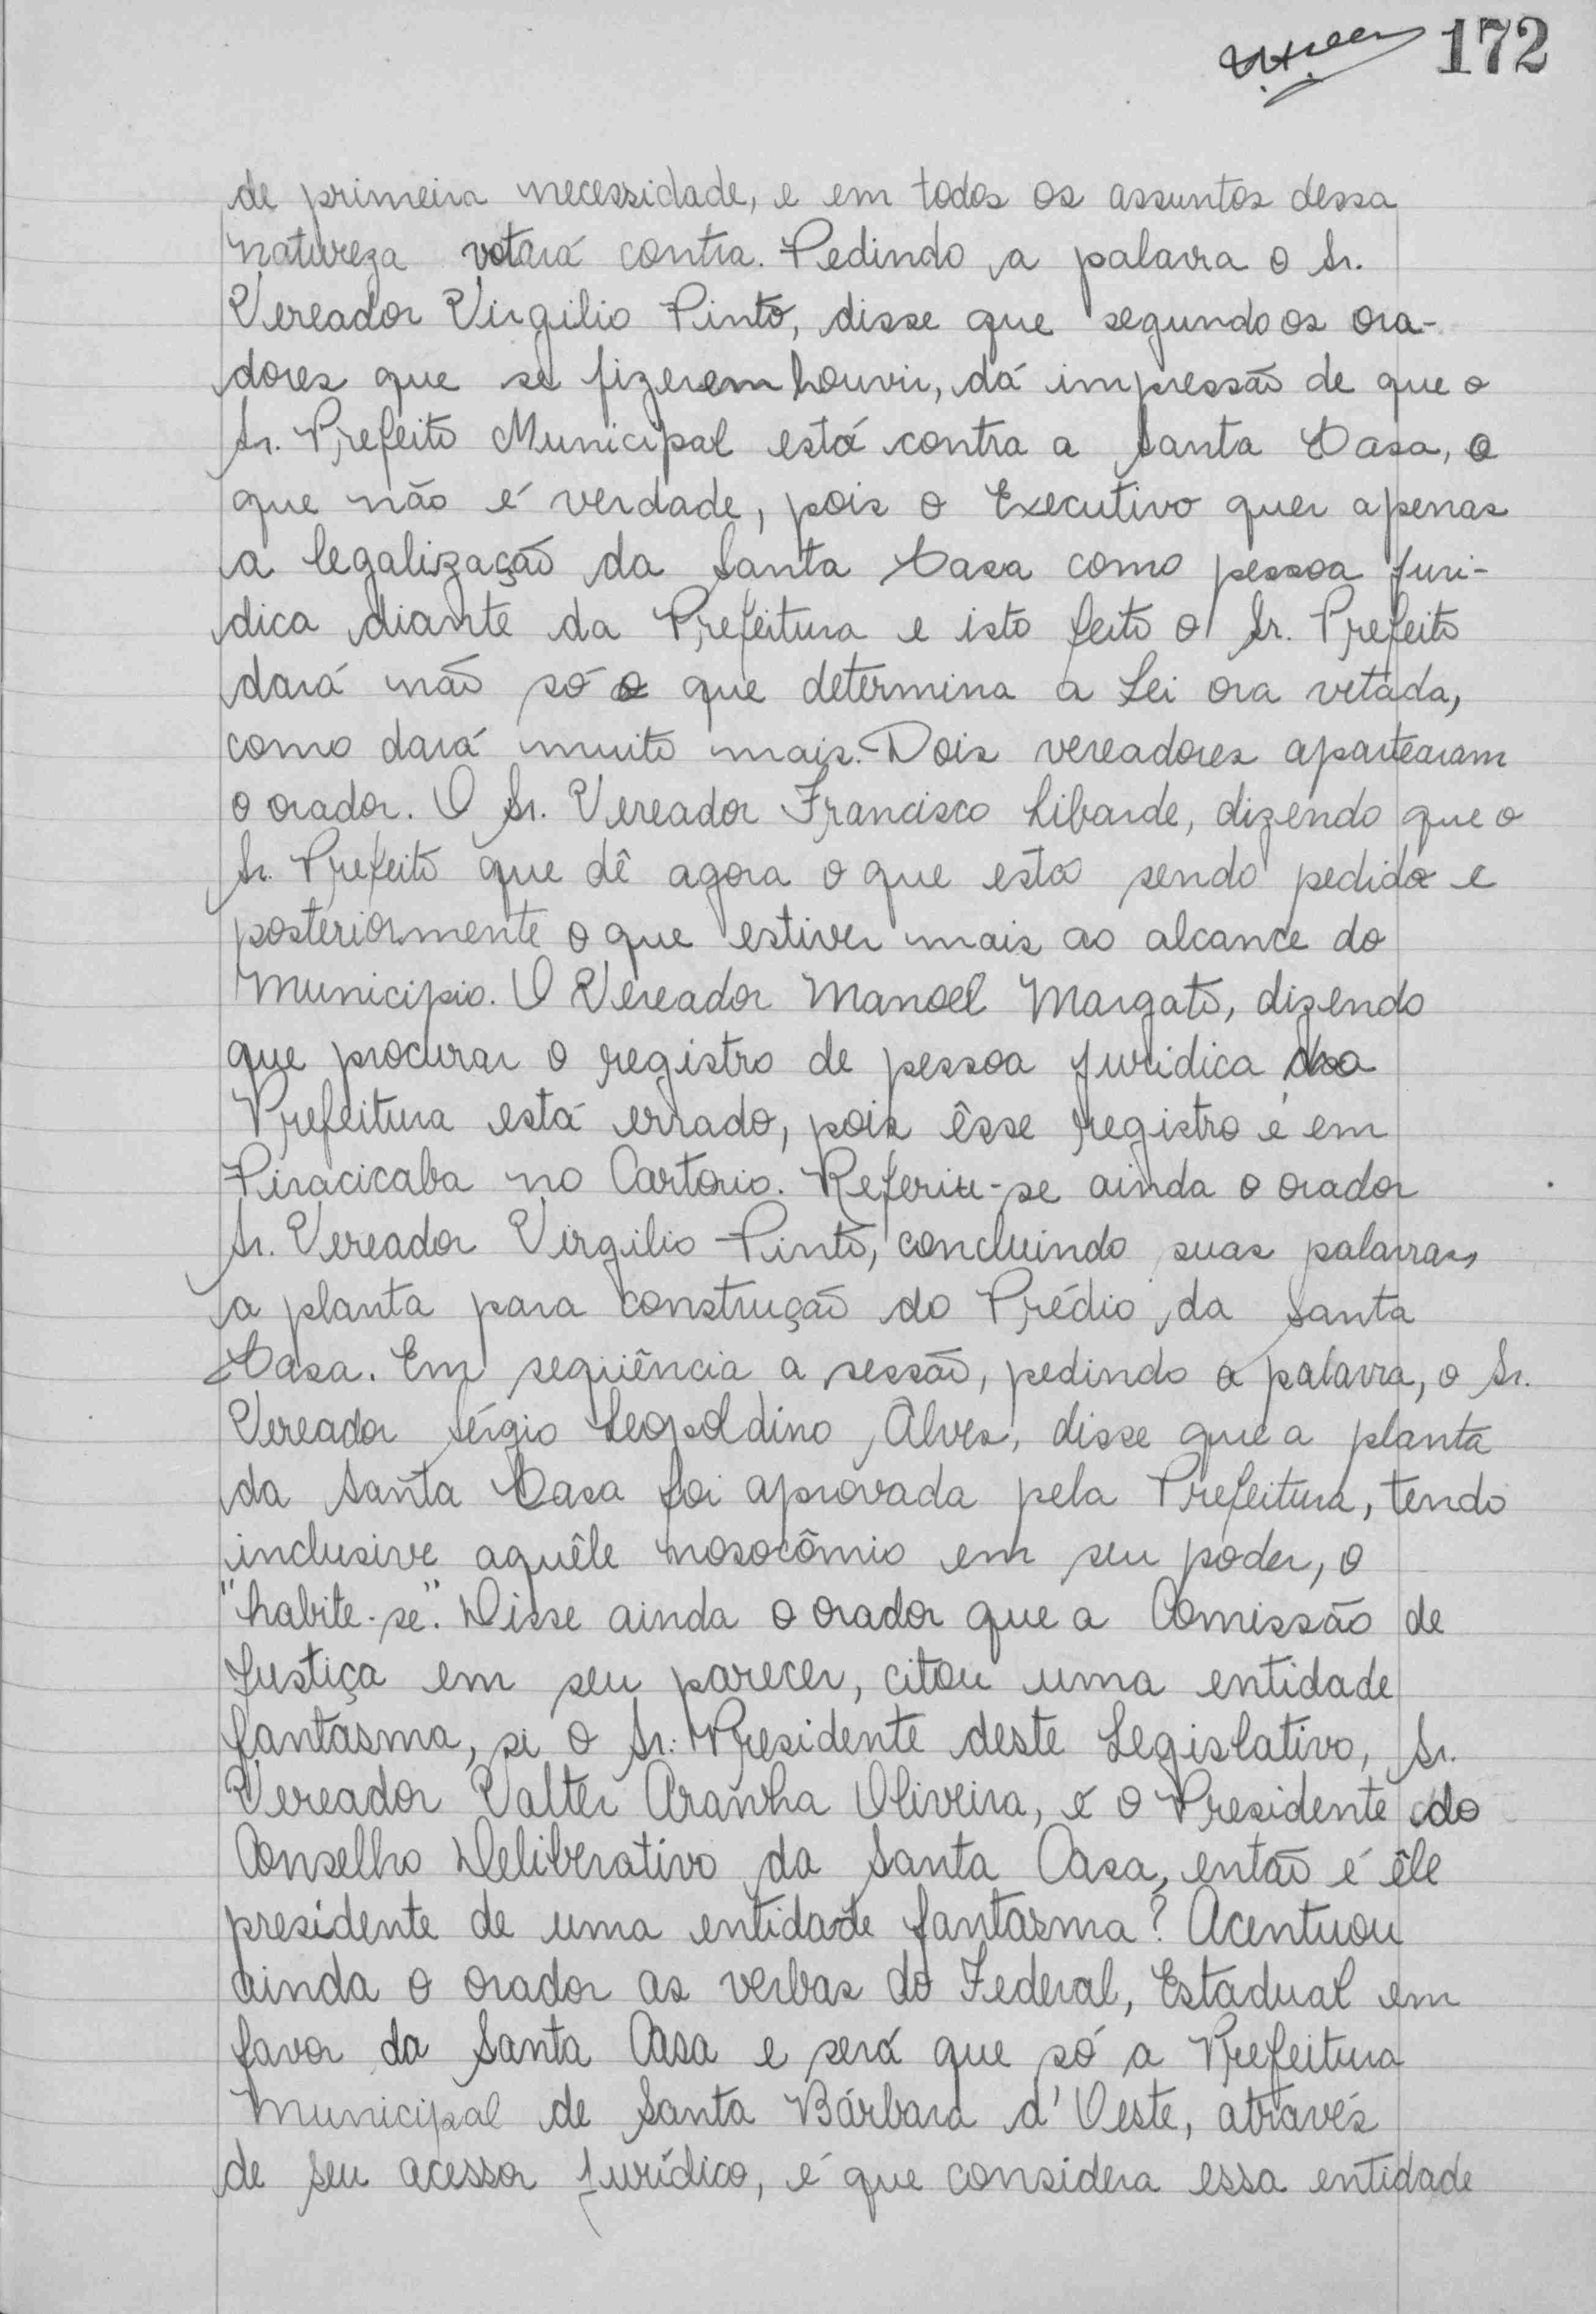 172
de primeira necessidade, e em todos os assuntos dessa
natureza votará contra. Pedindo a palavra o Sr.
Vereador Virgilio Pinto, disse que segundo os ora-
dores que se fizerem houvir, dá impressão de que o
Sr. Prefeito Municipal está contra a Santa Casa, o
que não é verdade, pois o Executivo quer apenas
a legalização da Santa Casa como pessoa juri-
dica diante da Prefeitura e isto feito o Sr. Prefeito
dará não só o que determina a Lei ora vetada,
como dará muito mais. Dois vereadores apartearam
o orador. O Sr. Vereador Francisco Libarde, dizendo que o
Sr. Prefeito que dê agora o que está sendo pedido e
posteriormente o que estiver mais ao alcance do
Municipio. O Vereador Manoel Margato, dizendo
que procurar o registro de pessoa juridica na
Prefeitura está errado, pois êsse registro é em
Piracicaba no Cartorio. Referiu-se ainda o orador
Sr. Vereador Virgilio Pinto, concluindo suas palavras,
a planta para construção do Prédio da Santa
Casa. Em seqüência a sessão, pedindo a palavra, o Sr.
Vereador Sérgio Leopoldino Alves, disse que a planta
da Santa Casa foi aprovada pela Prefeitura, tendo
inclusive aquêle nosocômio em seu poder, o
"habite-se". Disse ainda o orador que a Comissão de
Justiça em seu parecer, citou uma entidade
fantasma, si o Sr. Presidente deste Legislativo, Sr.
Vereador Valter Aranha Oliveira, é o Presidente do
Conselho Deliberativo da Santa Casa, então é êle
presidente de uma entidade fantasma? Acentuou
ainda o orador as verbas do Federal, Estadual em
favor da Santa Casa e será que só a Prefeitura
Municipal de Santa Bárbara d'Oeste, através
de seu acessor Jurídico, é que considera essa entidade